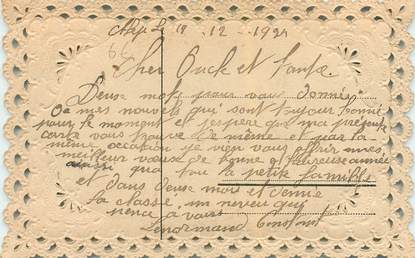 Le 19 . 12 . 1921
Cher Onck et Tante.
Deux mots pour vous données
De mes nouvels qui sont toujour bonne
pour le moment et jespere que ma présente
carte vous trouve de même et par la
même occasion je vien vous offrir mes
meilleur vœux de bonne et heureuse année
que tou la petit famille
et dans deux mois et demie
la classe, un neveu qui
pence a vous
Lenormand Constant